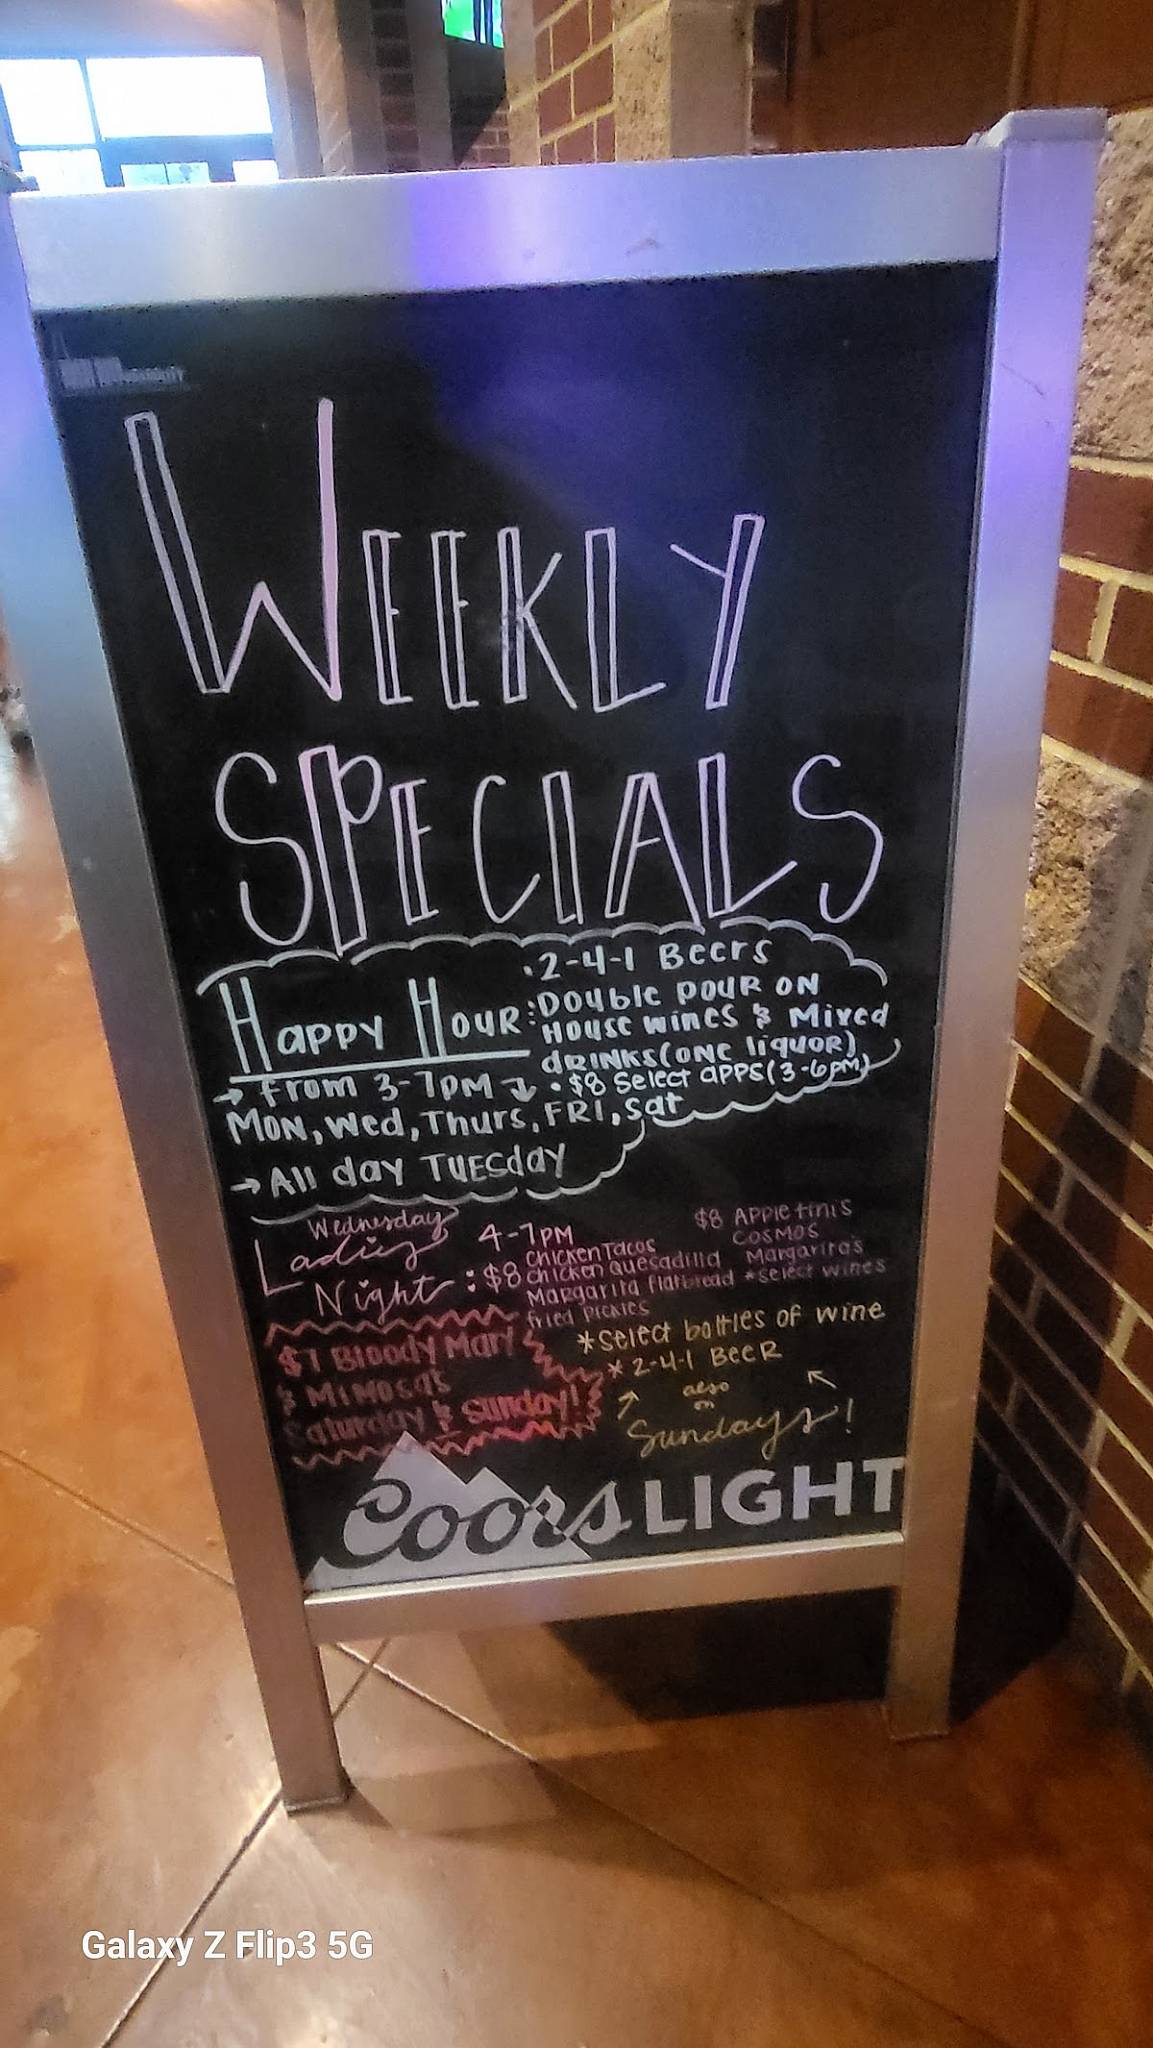 WEEKLY
SPECIALS
HAPPY HOUR:
• 2-4-1 Beers
• Double pour on
House wines & Mixed
drinks (one liquor)
• $8 select apps (3-6pm)
→ from 3-7pm ↓
Mon, Wed, Thurs, FRI, Sat
→ All day TUESday
Wednesday
Ladies
Night:
4-7pm
$8
Chicken Tacos
Chicken Quesadilla
Margarita flatbread
fried pickles
$8 Appletinis
Cosmos
Margarita's
*select wines
*select bottles of wine
* 2-4-1 BeeR
also
on
Sundays!
$7 Bloody Mary
& Mimosas
Saturday & Sunday!
Coors LIGHT
Galaxy Z Flip3 5G